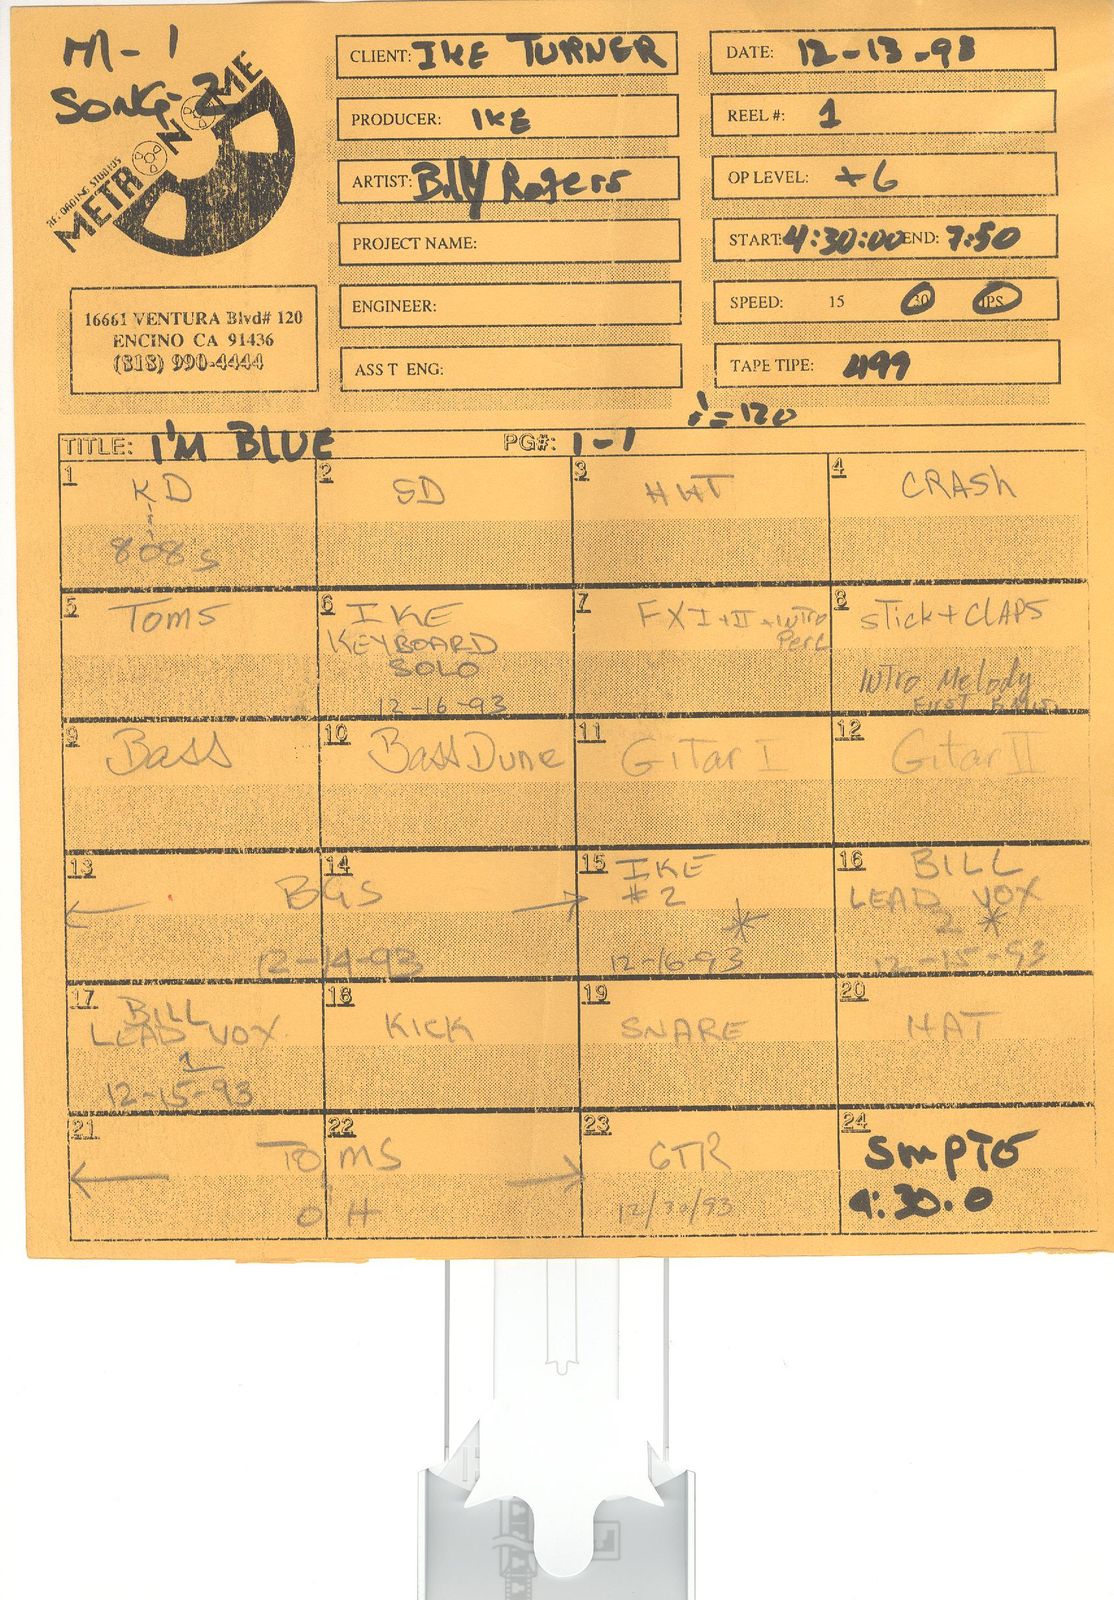 M-1
SONG-2
RECORDING STUDIOS
METRONOME
16661 VENTURA Blvd# 120
ENCINO CA 91436
(818) 990-4444
CLIENT: IKE TURNER
PRODUCER: IKE
ARTIST: Billy Rogers
PROJECT NAME:
ENGINEER:
ASS T ENG:
DATE: 12-13-93
REEL #: 1
OP LEVEL: +6
START: 4:30:00 END: 7:50
SPEED: 15 30 IPS
TAPE TIPE: 499
= 120
TITLE: I'M BLUE PG#: 1-1
1 KD
808's
2 SD
3 HAT
4 CRASH
5 Toms
6 IKE
KEYBOARD
SOLO
12-16-93
7 FX I + II + INTRO
Perc
8 STick + CLAPS
INTro Melody
First
9 Bass
10 Bass Dune
11 GiTar I
12 Gitar II
13 14 BGS
12-14-93
15 IKE
# 2
*
12-16-93
16 BILL
LEAD VOX
2 *
12-15-93
17 BILL
LEAD VOX.
1
12-15-93
18 KICK
19 SNARE
20 HAT
21 22 TOMS
OH
23 GTR
12/30/93
24 SMPTE
4:30.0